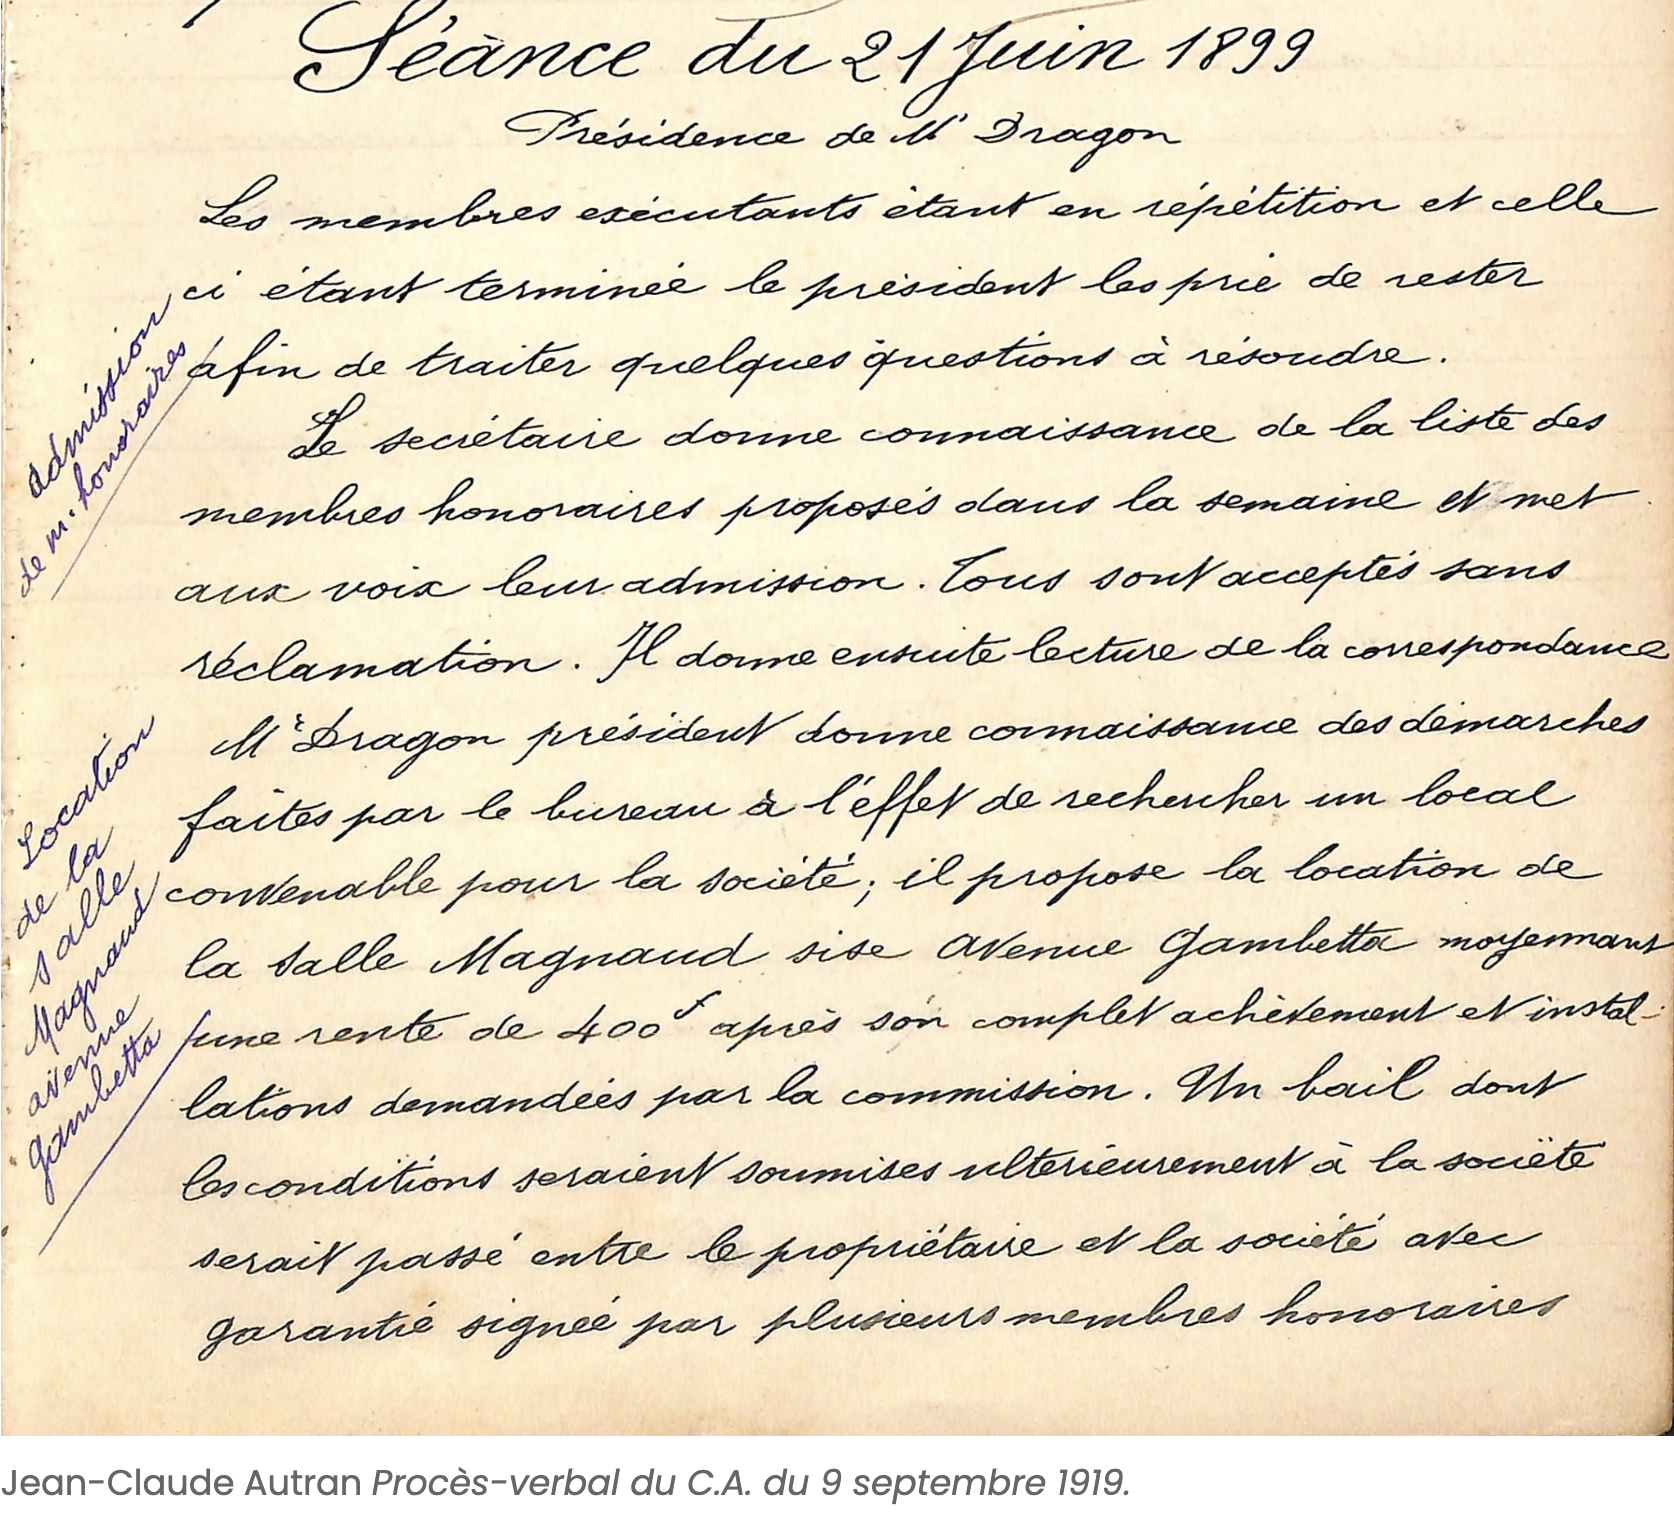 Séance du 21 Juin 1899
Présidence de Mr Dragon
Les membres exécutants étant en répétition et celle
ci étant terminée le président les prie de rester
afin de traiter quelques questions à résoudre.
admission
de m. honoraires
Le secrétaire donne connaissance de la liste des
membres honoraires proposés dans la semaine et met
aux voix leur admission. Tous sont acceptés sans
réclamation. Il donne ensuite lecture de la correspondance
Mr Dragon président donne connaissance des démarches
faites par le bureau à l'effet de rechercher un local
convenable pour la société; il propose la location de
la salle Magnaud sise avenue Gambetta moyennant
une rente de 400f après son complet achèvement et instal-
lations demandées par la commission. Un bail dont
les conditions seraient soumises ultérieurement à la société
serait passé entre le propriétaire et la société avec
garantie signée par plusieurs membres honoraires
Location
de la
salle
Magnaud
avenue
Gambetta
Jean-Claude Autran Procès-verbal du C.A. du 9 septembre 1919.